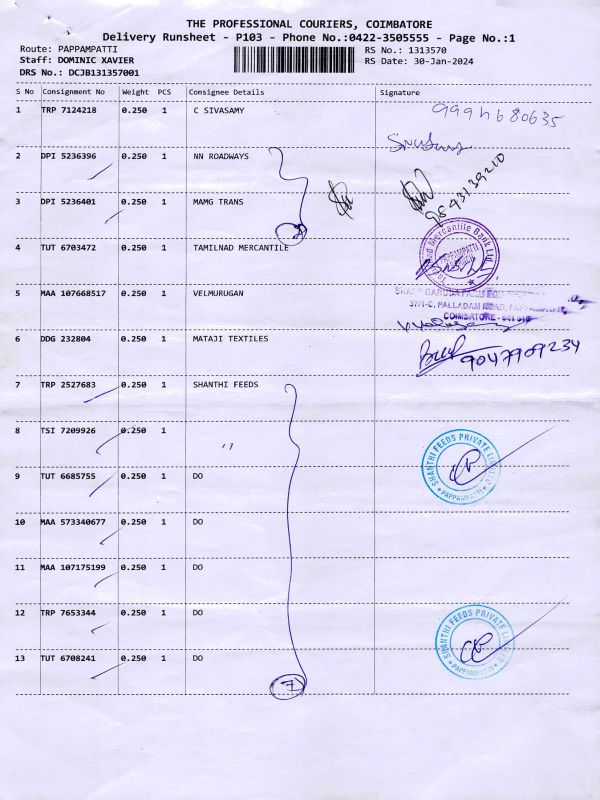 THE PROFESSIONAL COURIERS, COIMBATORE
Delivery Runsheet - P103 - Phone No.:0422-3505555 - Page No.:1
Route: PAPPAMPATTI RS No.: 1313570
Staff: DOMINIC XAVIER RS Date: 30-Jan-2024
DRS No.: DCJB131357001
S No Consignment No Weight PCS Consignee Details Signature
1 TRP 7124218 0.250 1 C SIVASAMY
2 DPI 5236396 0.250 1 NN ROADWAYS
9843139210
3 DPI 5236401 0.250 1 MAMG TRANS
2
Mercantile Bank Ltd.
PAPPAMPATTI
4 TUT 6703472 0.250 1 TAMILNAD MERCANTILE
5 MAA 107668517 0.250 1 VELMURUGAN
37/1-C, PALLADAM ROAD,
COIMBATORE
6 DDG 232804 0.250 1 MATAJI TEXTILES
9047909234
7 TRP 2527683 0.250 1 SHANTHI FEEDS
8 TSI 7209926 0.250 1 ,,
SHANTHI FEEDS PRIVATE
PAPPAMPATTI
9 TUT 6685755 0.250 1 DO
10 MAA 573340677 0.250 1 DO
11 MAA 107175199 0.250 1 DO
12 TRP 7653344 0.250 1 DO
SHANTHI FEEDS PRIVATE
PAPPAMPATTI
13 TUT 6708241 0.250 1 DO
7